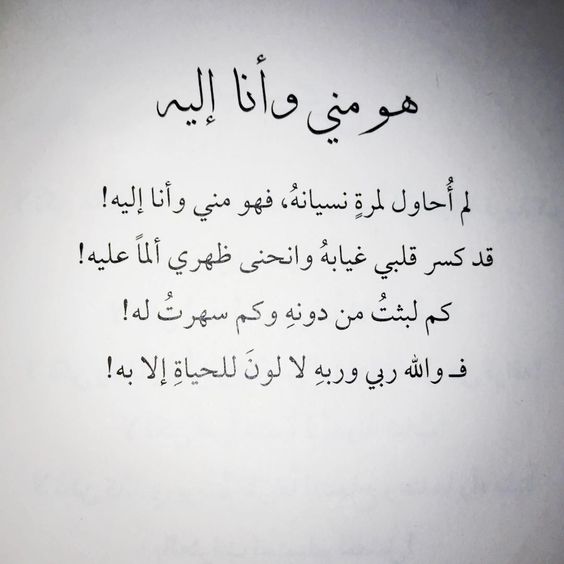 هو مني وأنا إليه
لم أُحاول لمرةٍ نسيانهُ، فهو مني وأنا إليه!
قد كسر قلبي غيابهُ وانحنى ظهري ألماً عليه!
كم لبثتُ من دونهِ وكم سهرتُ له!
فـ والله ربي وربهِ لا لونَ للحياةِ إلا به!